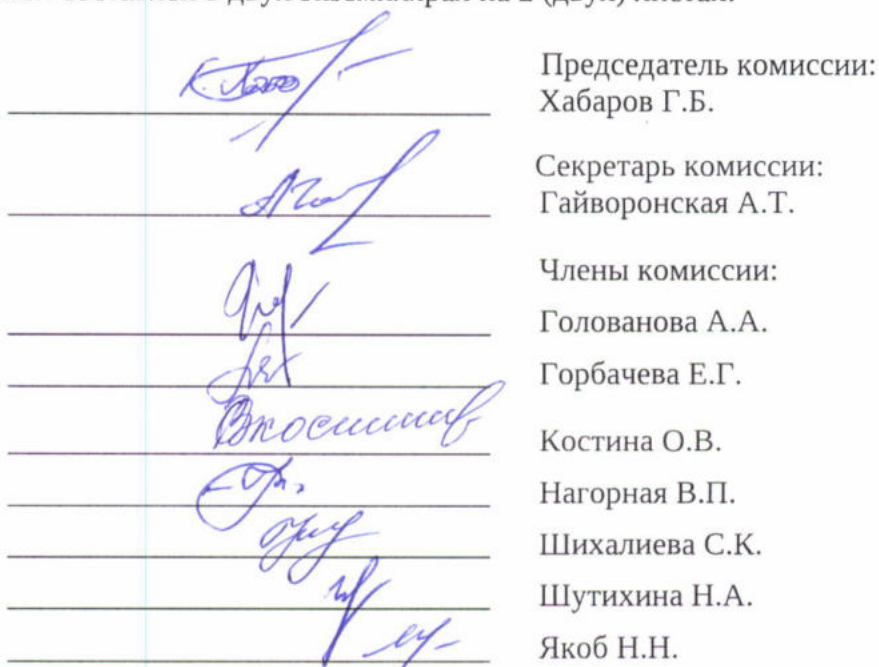 в двух экземплярах на 2 (двух) листах.
Председатель комиссии:
Хабаров Г.Б.
Секретарь комиссии:
Гайворонская А.Т.
Члены комиссии:
Голованова А.А.
Горбачева Е.Г.
Костина О.В.
Нагорная В.П.
Шихалиева С.К.
Шутихина Н.А.
Якоб Н.Н.